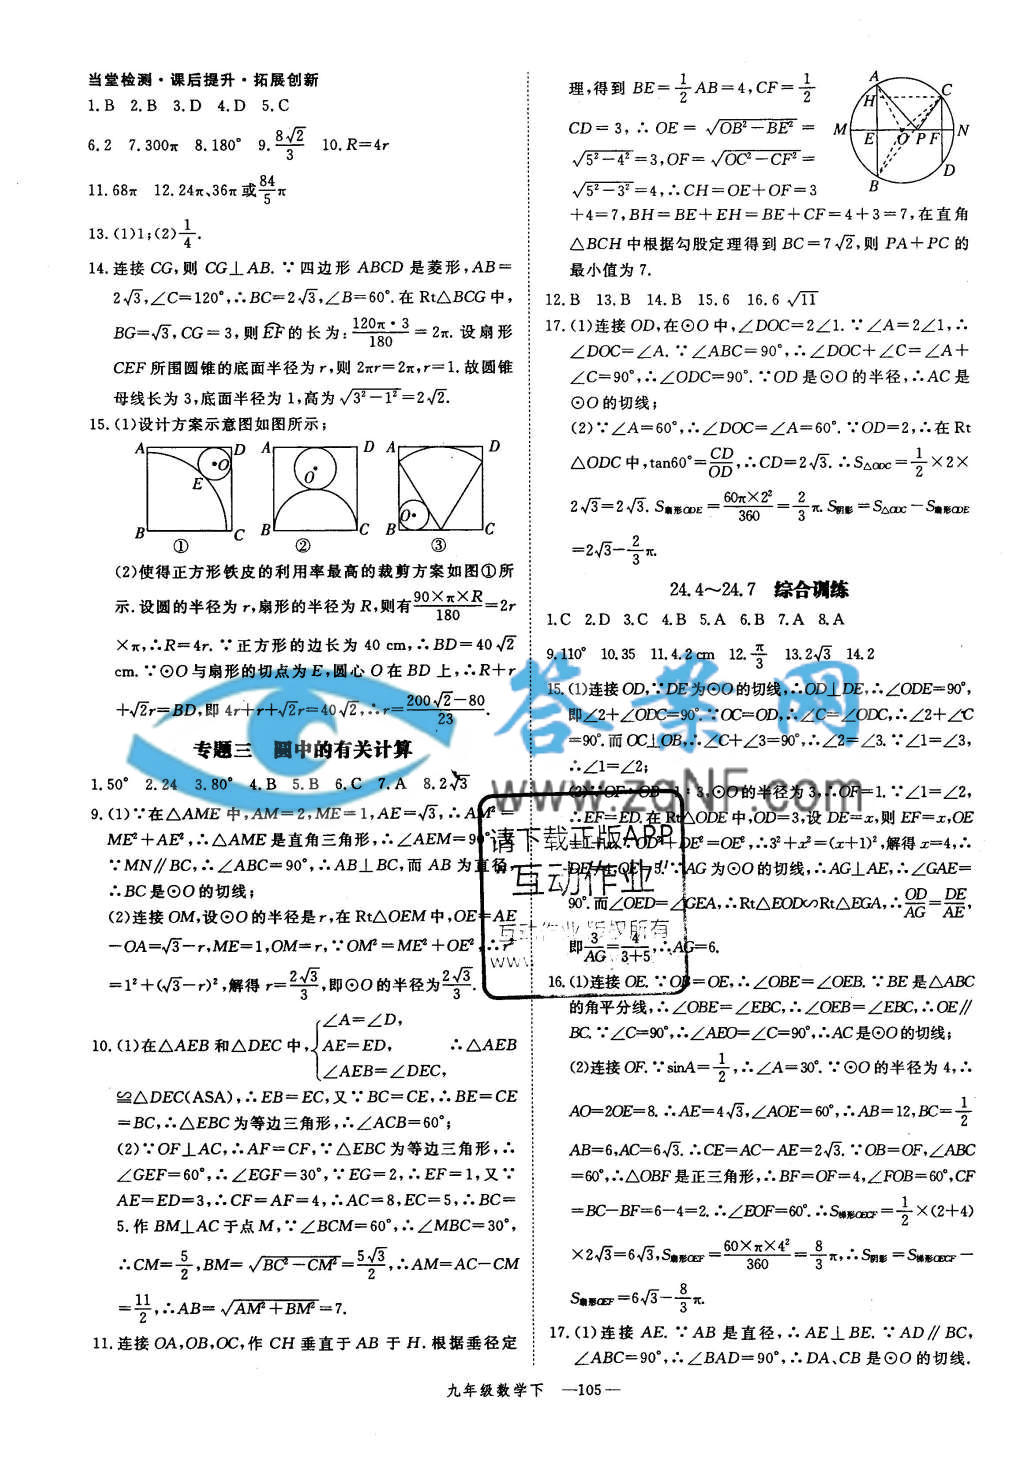 当堂检测·课后提升·拓展创新
1.B 2.B 3.D 4.D 5.C
6.2 7.300π 8.180° 9.8√2/3 10.R=4r
11.68π 12.24π、36π或84/5π
13.(1)1;(2)1/4.
14.连接 CG,则 CG⊥AB.∵四边形 ABCD 是菱形,AB=
2√3,∠C=120°,∴BC=2√3,∠B=60°.在 Rt△BCG 中,
BG=√3,CG=3,则EF的长为:120π·3/180=2π.设扇形
CEF 所围圆锥的底面半径为 r,则 2πr=2π,r=1.故圆锥
母线长为 3,底面半径为 1,高为√(3²-1²)=2√2.
15.(1)设计方案示意图如图所示;
A D A D A D
O E O O
B C B C B C
① ② ③
(2)使得正方形铁皮的利用率最高的裁剪方案如图①所
示.设圆的半径为 r,扇形的半径为 R,则有90×π×R/180=2r
×π,∴R=4r.∵正方形的边长为 40 cm,∴BD=40√2
cm.∵⊙O 与扇形的切点为 E,圆心 O 在 BD 上,∴R+r
+√2r=BD,即 4r+r+√2r=40√2,∴r=(200√2-80)/23.
专题三 圆中的有关计算
1.50° 2.24 3.80° 4.B 5.B 6.C 7.A 8.2√3
9.(1)∵在△AME 中,AM=2,ME=1,AE=√3,∴AM²=
ME²+AE²,∴△AME 是直角三角形,∴∠AEM=90°.
∵MN∥BC,∴∠ABC=90°,∴AB⊥BC,而 AB 为直径,
∴BC 是⊙O 的切线;
(2)连接 OM,设⊙O 的半径是 r,在 Rt△OEM 中,OE=AE
-OA=√3-r,ME=1,OM=r,∵OM²=ME²+OE²,∴r²
=1²+(√3-r)²,解得 r=2√3/3,即⊙O 的半径为2√3/3.
10.(1)在△AEB 和△DEC 中,{∠A=∠D, AE=ED, ∠AEB=∠DEC, ∴△AEB
≌△DEC(ASA),∴EB=EC,又∵BC=CE,∴BE=CE
=BC,∴△EBC 为等边三角形,∴∠ACB=60°;
(2)∵OF⊥AC,∴AF=CF,∵△EBC 为等边三角形,∴
∠GEF=60°,∴∠EGF=30°,∵EG=2,∴EF=1,又∵
AE=ED=3,∴CF=AF=4,∴AC=8,EC=5,∴BC=
5.作 BM⊥AC 于点 M,∵∠BCM=60°,∴∠MBC=30°,
∴CM=5/2,BM=√(BC²-CM²)=5√3/2,∴AM=AC-CM
=11/2,∴AB=√(AM²+BM²)=7.
11.连接 OA,OB,OC,作 CH 垂直于 AB 于 H.根据垂径定
理,得到 BE=1/2AB=4,CF=1/2
CD=3,∴OE=√(OB²-BE²)=
√(5²-4²)=3,OF=√(OC²-CF²)=
√(5²-3²)=4,∴CH=OE+OF=3
A H C M E O P F N D B
+4=7,BH=BE+EH=BE+CF=4+3=7,在直角
△BCH 中根据勾股定理得到 BC=7√2,则 PA+PC 的
最小值为 7.
12.B 13.B 14.B 15.6 16.6√11
17.(1)连接 OD,在⊙O 中,∠DOC=2∠1.∵∠A=2∠1,∴
∠DOC=∠A.∵∠ABC=90°,∴∠DOC+∠C=∠A+
∠C=90°,∴∠ODC=90°.∵OD 是⊙O 的半径,∴AC 是
⊙O 的切线;
(2)∵∠A=60°,∴∠DOC=∠A=60°.∵OD=2,∴在 Rt
△ODC 中,tan60°=CD/OD,∴CD=2√3.∴S△ODC=1/2×2×
2√3=2√3.S扇形ODE=60π×2²/360=2/3π.S阴影=S△ODC-S扇形ODE
=2√3-2/3π.
24.4～24.7 综合训练
1.C 2.D 3.C 4.B 5.A 6.B 7.A 8.A
9.110° 10.35 11.4.2 cm 12.π/3 13.2√3 14.2
15.(1)连接 OD,∵DE 为⊙O 的切线,∴OD⊥DE,∴∠ODE=90°,
即∠2+∠ODC=90°.∵OC=OD,∴∠C=∠ODC,∴∠2+∠C
=90°.而 OC⊥OB,∴∠C+∠3=90°,∴∠2=∠3.∵∠1=∠3,
∴∠1=∠2;
(2)∵OF∶OB=1∶3,⊙O 的半径为 3,∴OF=1.∵∠1=∠2,
∴EF=ED.在 Rt△ODE 中,OD=3,设 DE=x,则 EF=x,OE
=1+x.∵OD²+DE²=OE²,∴3²+x²=(x+1)²,解得 x=4,∴
DE=4,OE=5.∵AG 为⊙O 的切线,∴AG⊥AE,∴∠GAE=
90°.而∠OED=∠GEA,∴Rt△EOD∽Rt△EGA,∴OD/AG=DE/AE,
即3/AG=4/(3+5),∴AG=6.
16.(1)连接 OE.∵OB=OE,∴∠OBE=∠OEB.∵BE 是△ABC
的角平分线,∴∠OBE=∠EBC,∴∠OEB=∠EBC,∴OE∥
BC.∵∠C=90°,∴∠AEO=∠C=90°,∴AC 是⊙O 的切线;
(2)连接 OF.∵sinA=1/2,∴∠A=30°.∵⊙O 的半径为 4,∴
AO=2OE=8.∴AE=4√3,∠AOE=60°,∴AB=12,BC=1/2
AB=6,AC=6√3.∴CE=AC-AE=2√3.∵OB=OF,∠ABC
=60°,∴△OBF 是正三角形,∴BF=OF=4,∠FOB=60°,CF
=BC-BF=6-4=2.∴∠EOF=60°.∴S梯形OECF=1/2×(2+4)
×2√3=6√3,S扇形OEF=60×π×4²/360=8/3π,∴S阴影=S梯形OECF-
S扇形OEF=6√3-8/3π.
17.(1)连接 AE.∵AB 是直径,∴AE⊥BE.∵AD∥BC,
∠ABC=90°,∴∠BAD=90°,∴DA、CB 是⊙O 的切线.
九年级数学下 —105—
答案网
www.zqNF.com
请下载正版APP
互动作业
互动作业 版权所有